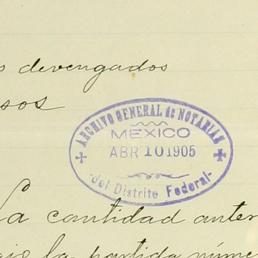 devengados
sos
ARCHIVO GENERAL de NOTARIAS
MEXICO
ABR 10 1905
del Distrito Federal
La cantidad anter
la partida núme